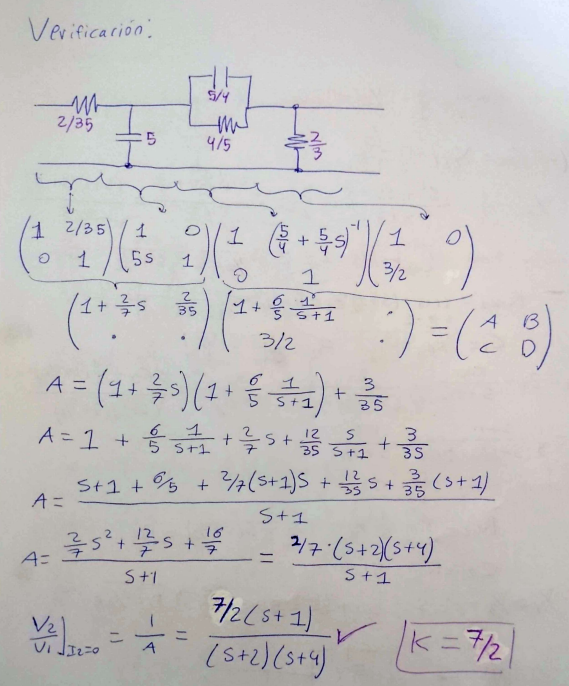 Verificación:
2/35 5 5/4 4/5 2/3
(1 2/35 0 1) (1 0 5s 1) (1 (5/4 + 5/4 s)^-1 0 1) (1 0 3/2 )
(1 + 2/7 s 2/35 . .) (1 + 6/5 1/(s+1) . 3/2 .) = (A B C D)
A = (1 + 2/7 s)(1 + 6/5 1/(s+1)) + 3/35
A = 1 + 6/5 1/(s+1) + 2/7 s + 12/35 s/(s+1) + 3/35
A = (s+1 + 6/5 + 2/7(s+1)s + 12/35 s + 3/35 (s+1))/(s+1)
A = (2/7 s² + 12/7 s + 16/7)/(s+1) = (2/7·(s+2)(s+4))/(s+1)
V2/V1]I2=0 = 1/A = (7/2(s+1))/((s+2)(s+4)) ✓ K = 7/2